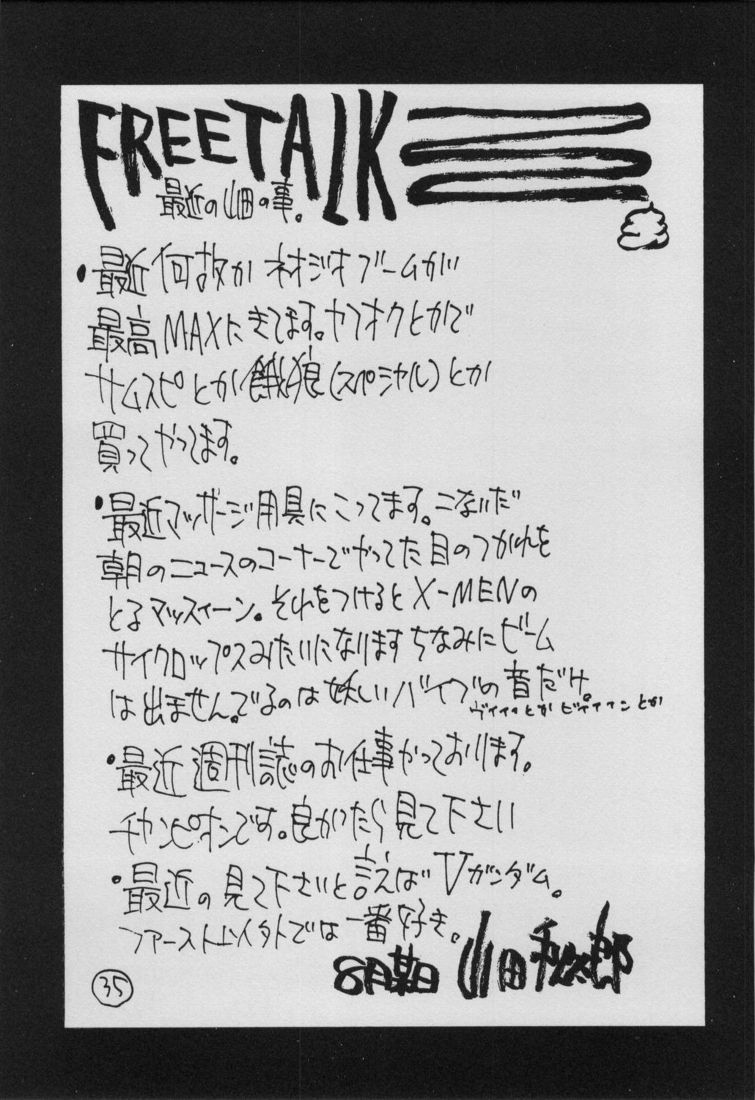 FREETALK
最近の山田の事。
・最近何故かネオジオブームが
最高MAXにきてます。ヤフオクとかで
サムスピとか餓狼(スペシャル)とか
買ってやってます。
・最近マッサージ用具にこってます。こないだ
朝のニュースのコーナーでやってた目のつかれを
とるマッスィーン。それをつけるとX-MENの
サイクロップスみたいになりますちなみにビーム
は出ません。でるのは妖しいバイブの音だけ。
ヴイイイとかビイイインとか
・最近週刊誌のお仕事やっております。
チャンピオンです。良かったら見て下さい
・最近の見て下さいと言えばVガンダム。
ファースト以外では一番好き。
8月某日 山田秋太郎
35